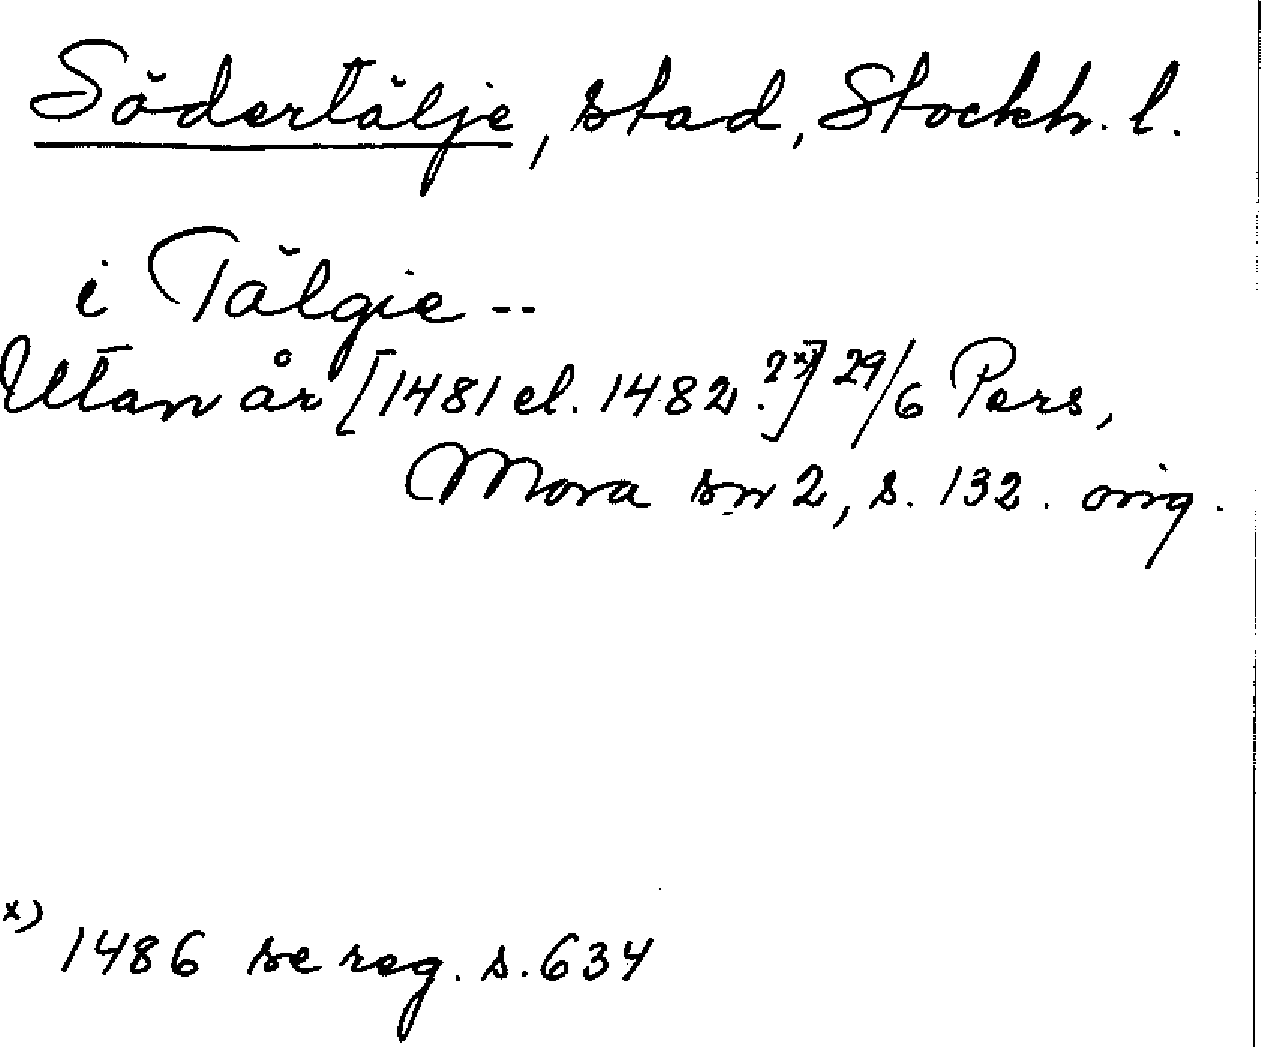 Södertälje, stad, Stockh. l.
i Tälgie --
Utan år [1481 el. 1482 ?x)] 29/6 Pers,
Mora sn 2, s. 132. orig.
x) 1486 se reg. s. 634